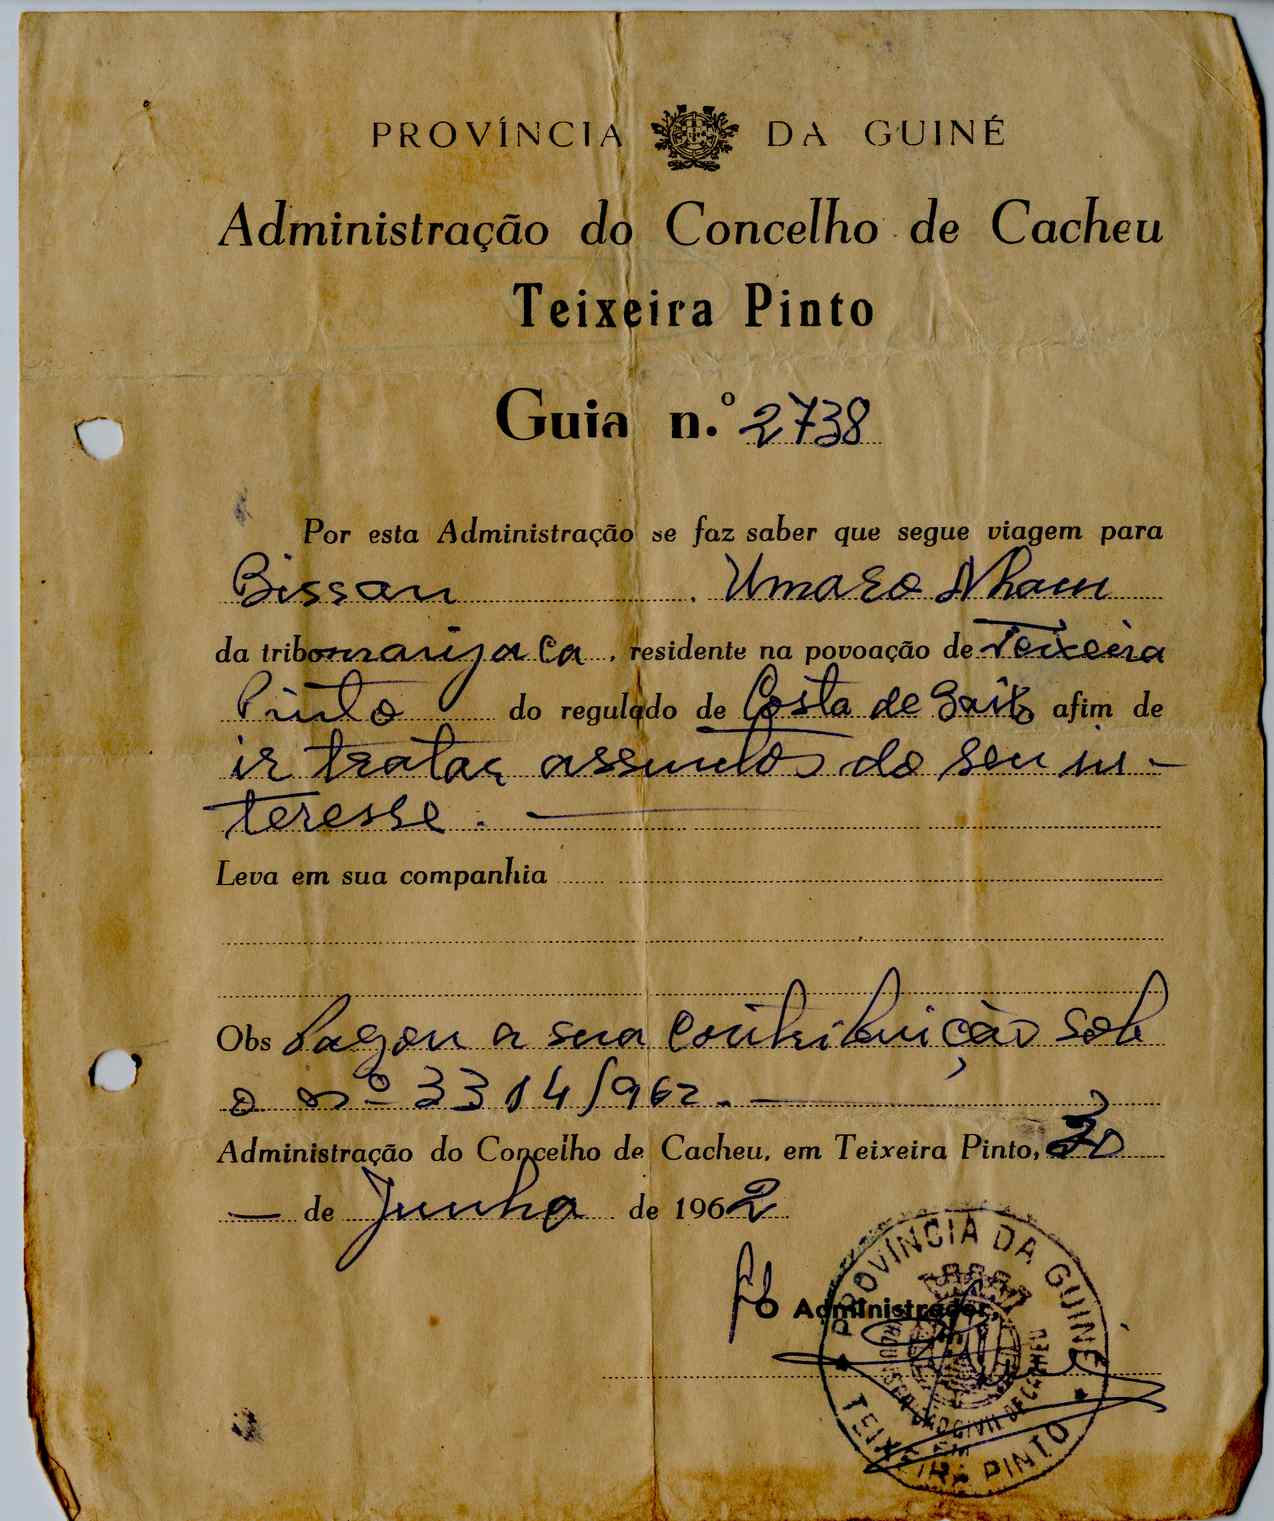 PROVÍNCIA DA GUINÉ
Administração do Concelho de Cacheu
Teixeira Pinto
Guia n.º 2738
Por esta Administração se faz saber que segue viagem para
Bissau . Umaro Nham
da tribo manjaca, residente na povoação de Teixeira
Pinto do regulado de Costa de Baixo afim de
ir tratar assuntos do seu in-
teresse.
Leva em sua companhia
Obs Pagou a sua contribuição sob
o nº 3314/962.
Administração do Concelho de Cacheu, em Teixeira Pinto, 30
— de Junho de 1962
O Administrador,
PROVÍNCIA DA GUINÉ
TEIXEIRA PINTO